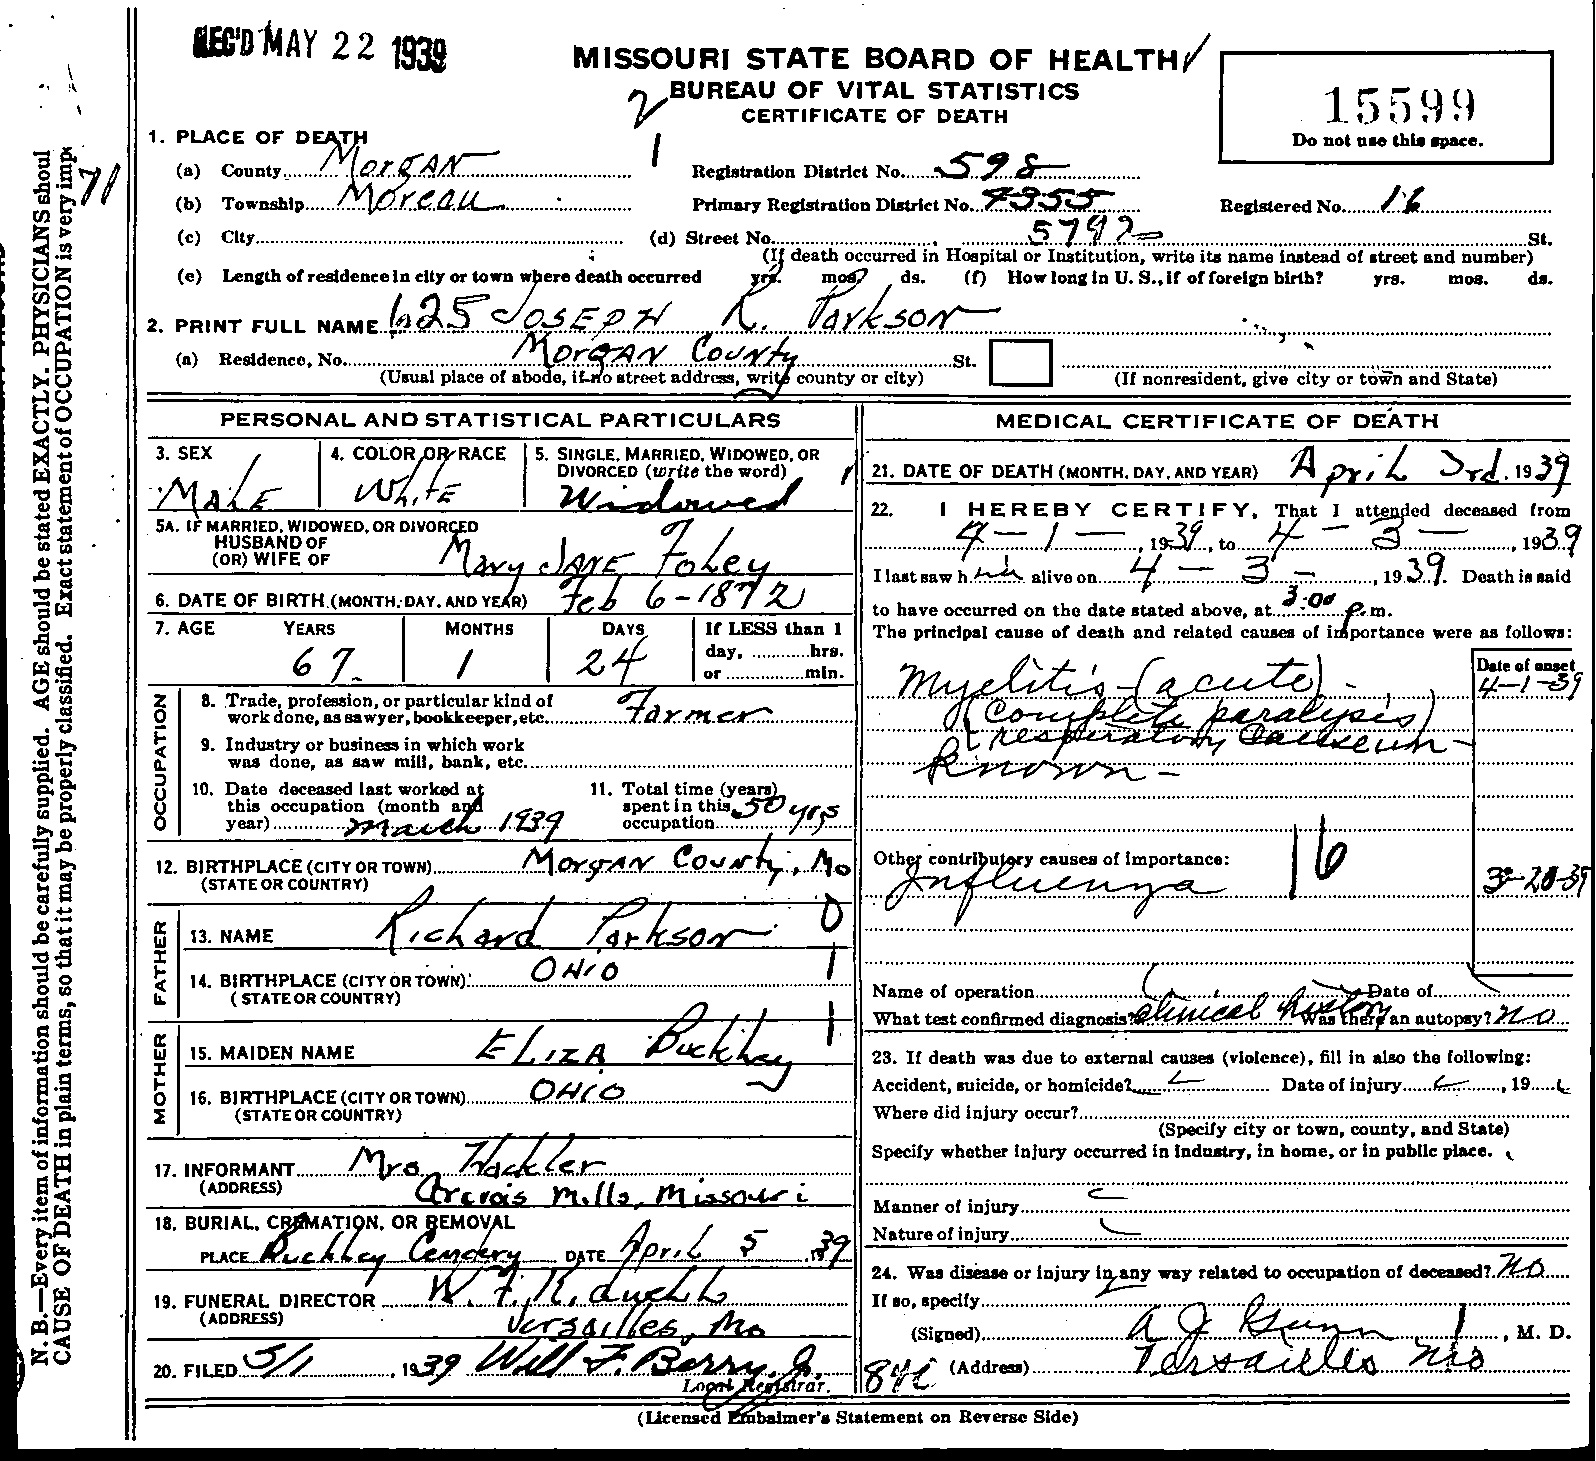 REC'D MAY 22 1939
MISSOURI STATE BOARD OF HEALTH
BUREAU OF VITAL STATISTICS
CERTIFICATE OF DEATH
15599
Do not use this space.
2
1
71
1. PLACE OF DEATH
(a) County Morgan
Registration District No. 598
(b) Township Moreau
Primary Registration District No. 4355
Registered No. 16
(c) City
(d) Street No. St.
5792
(If death occurred in Hospital or Institution, write its name instead of street and number)
(e) Length of residence in city or town where death occurred yrs. mos. ds. (f) How long in U. S., if of foreign birth? yrs. mos. ds.
2. PRINT FULL NAME 625 Joseph R. Parkson
(a) Residence, No. Morgan County St.
(Usual place of abode, if no street address, write county or city)
(If nonresident, give city or town and State)
PERSONAL AND STATISTICAL PARTICULARS
3. SEX
Male
4. COLOR OR RACE
White
5. SINGLE, MARRIED, WIDOWED, OR
DIVORCED (write the word)
Widowed
5A. IF MARRIED, WIDOWED, OR DIVORCED
HUSBAND OF
(OR) WIFE OF Mary Jane Foley
6. DATE OF BIRTH (MONTH, DAY, AND YEAR) Feb 6-1872
7. AGE YEARS MONTHS DAYS If LESS than 1
day, hrs.
67 1 24
or min.
OCCUPATION
8. Trade, profession, or particular kind of
work done, as sawyer, bookkeeper, etc. Farmer
9. Industry or business in which work
was done, as saw mill, bank, etc.
10. Date deceased last worked at
this occupation (month and
year) March 1939
11. Total time (years)
spent in this 50 yrs
occupation
12. BIRTHPLACE (CITY OR TOWN) Morgan County, Mo
(STATE OR COUNTRY)
FATHER
13. NAME Richard Parkson
14. BIRTHPLACE (CITY OR TOWN) Ohio
(STATE OR COUNTRY)
MOTHER
15. MAIDEN NAME Eliza Buckley
16. BIRTHPLACE (CITY OR TOWN) Ohio
(STATE OR COUNTRY)
17. INFORMANT Mrs Hackler
(ADDRESS) Mills, Missouri
18. BURIAL, CREMATION, OR REMOVAL
PLACE Buckley Cemetery DATE April 5 1939
19. FUNERAL DIRECTOR W. F.
(ADDRESS) Versailles, Mo
20. FILED 5/1, 1939 Will F. Berry Jr.
Local Registrar.
MEDICAL CERTIFICATE OF DEATH
21. DATE OF DEATH (MONTH, DAY, AND YEAR) April 3rd. 1939
22. I HEREBY CERTIFY, That I attended deceased from
4-1-, 1939, to 4-3-, 1939
I last saw him alive on 4-3-, 1939. Death is said
to have occurred on the date stated above, at 3:00 p.m.
The principal cause of death and related causes of importance were as follows:
Date of onset
Myelitis-(acute)- 4-1-39
(complete paralysis)
(respiratory cause un-
known-
Other contributory causes of importance:
Influenza 16 3-20-39
Name of operation Date of
What test confirmed diagnosis? Clinical history Was there an autopsy? No
23. If death was due to external causes (violence), fill in also the following:
Accident, suicide, or homicide? Date of injury, 19
Where did injury occur?
(Specify city or town, county, and State)
Specify whether injury occurred in industry, in home, or in public place.
Manner of injury
Nature of injury
24. Was disease or injury in any way related to occupation of deceased? No
If so, specify
(Signed) A J Gunn, M. D.
(Address) Versailles Mo
(Licensed Embalmer's Statement on Reverse Side)
N. B.—Every item of information should be carefully supplied. AGE should be stated EXACTLY. PHYSICIANS shoul
CAUSE OF DEATH in plain terms, so that it may be properly classified. Exact statement of OCCUPATION is very imp